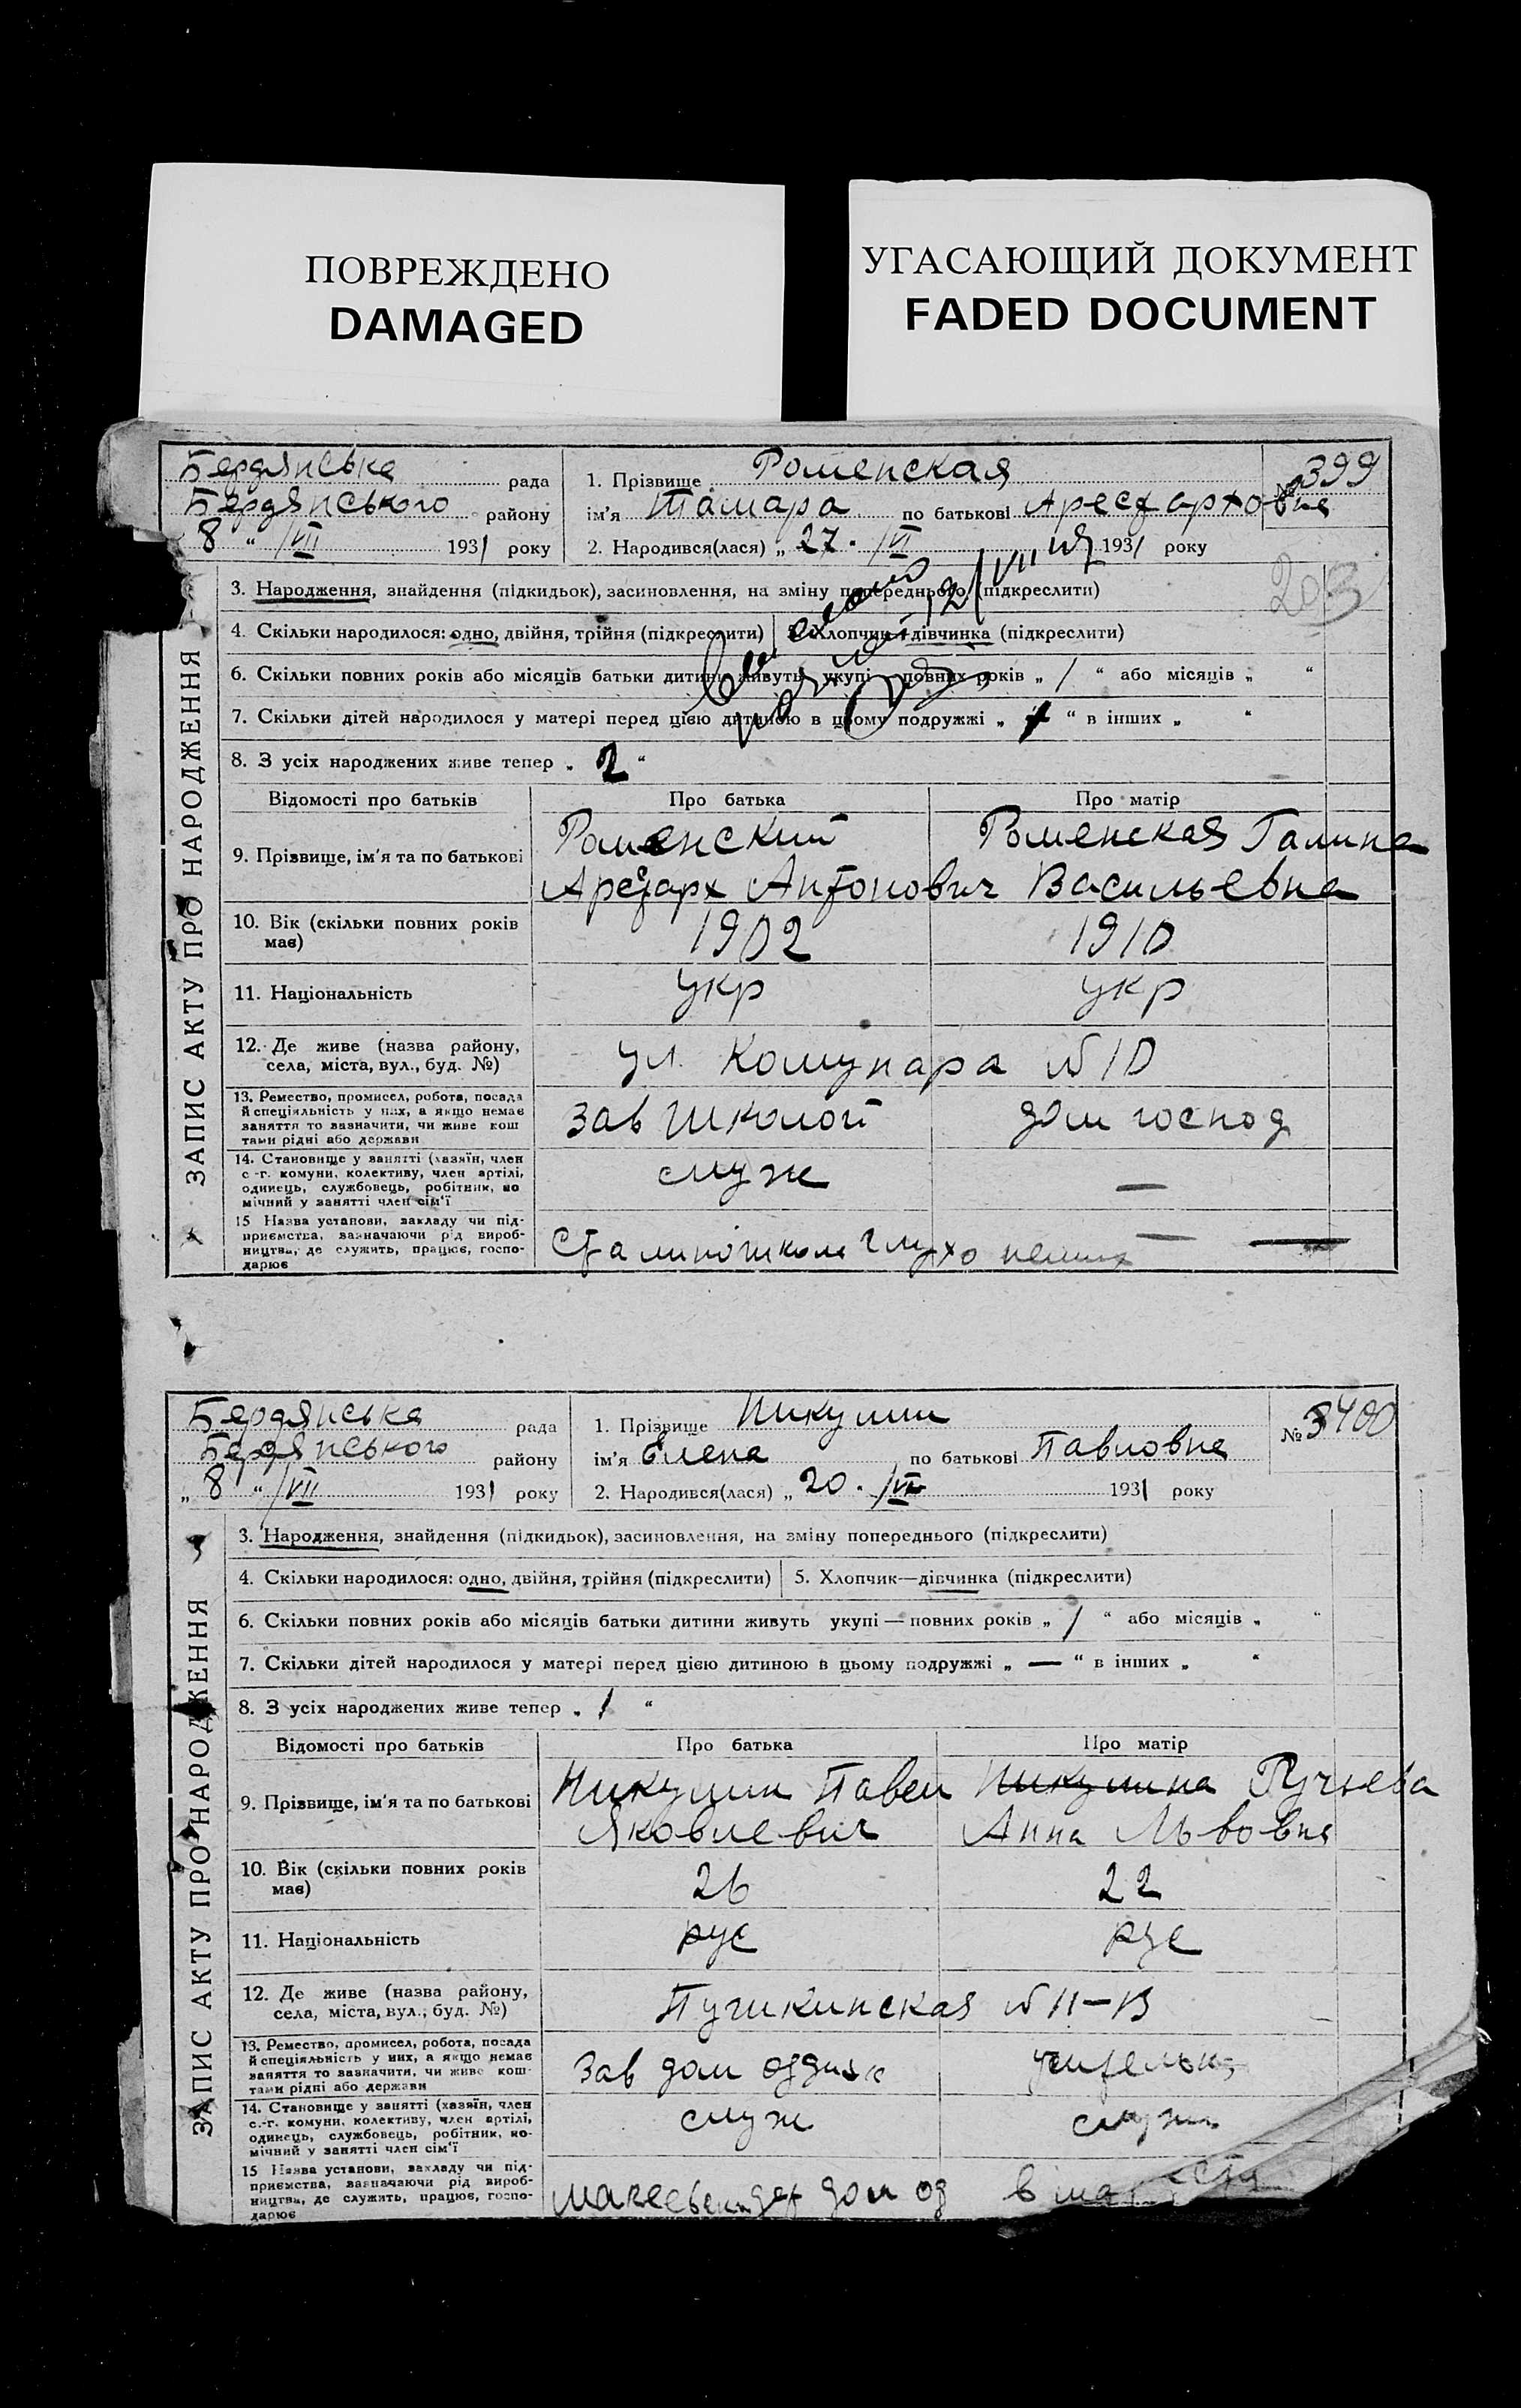 ПОВРЕЖДЕНО
DAMAGED
УГАСАЮЩИЙ ДОКУМЕНТ
FADED DOCUMENT
Бердянська рада
Бердянського району
8 " /VII 1931 року
1. Прізвище Роменская
№ 399
ім'я Тамара по батькові Арестарховна
2. Народився(лася) „ 27. /VI 1931 року
203
ЗАПИС АКТУ ПРО НАРОДЖЕННЯ
3. Народження, знайдення (підкидьок), засиновлення, на зміну попереднього (підкреслити)
4. Скільки народилося: одно, двійня, трійня (підкреслити) 5. Хлопчик—дівчинка (підкреслити)
6. Скільки повних років або місяців батьки дитини живуть укупі — повних років „ / “ або місяців „ “
7. Скільки дітей народилося у матері перед цією дитиною в цьому подружжі „ 1 “ в інших „ “
8. З усіх народжених живе тепер „ 2 “
Відомості про батьків Про батька Про матір
9. Прізвище, ім'я та по батькові
Роменский
Арестарх Антонович
Роменская Галина
Васильевна
10. Вік (скільки повних років
має)
1902 1910
11. Національність укр укр
12. Де живе (назва району,
села, міста, вул., буд. №)
ул. Комунара №10
13. Ремество, промисел, робота, посада
й спеціяльність у них, а якщо немає
заняття то зазначити, чи живе кош
тами рідні або держави
Зав школой дом господ
14. Становище у занятті (хазяїн, член
с.-г. комуни, колективу, член артілі,
одинець, службовець, робітник, по
мічний у занятті член сім'ї
служ —
15 Назва установи, закладу чи під-
приємства, зазначаючи рід вироб-
ництва, де служить, працює, госпо-
дарює
Сталино школа глухо немых — —
Бердянська рада
Бердянського району
„ 8 “ /VII 1931 року
1. Прізвище Никулин
№ 400
ім'я Елена по батькові Павловна
2. Народився(лася) „ 20. /VI 1931 року
ЗАПИС АКТУ ПРО НАРОДЖЕННЯ
3. Народження, знайдення (підкидьок), засиновлення, на зміну попереднього (підкреслити)
4. Скільки народилося: одно, двійня, трійня (підкреслити) 5. Хлопчик—дівчинка (підкреслити)
6. Скільки повних років або місяців батьки дитини живуть укупі — повних років „ / “ або місяців „ “
7. Скільки дітей народилося у матері перед цією дитиною в цьому подружжі „ — “ в інших „ “
8. З усіх народжених живе тепер „ 1 “
Відомості про батьків Про батька Про матір
9. Прізвище, ім'я та по батькові
Никулин Павел
Яковлевич
Никулина
Анна Львовна
10. Вік (скільки повних років
має)
26 22
11. Національність рус рус
12. Де живе (назва району,
села, міста, вул., буд. №)
Пушкинская №11-13
13. Ремество, промисел, робота, посада
й спеціяльність у них, а якщо немає
заняття то зазначити, чи живе кош-
тами рідні або держави
Зав дом отдыха учителька
14. Становище у занятті (хазяїн, член
с.-г. комуни, колективу, член артілі,
одинець, службовець, робітник, по-
мічний у занятті член сім'ї
служ служ
15 Назва установи, закладу чи під-
приємства, зазначаючи рід вироб-
ництва, де служить, працює, госпо-
дарює
дом од в